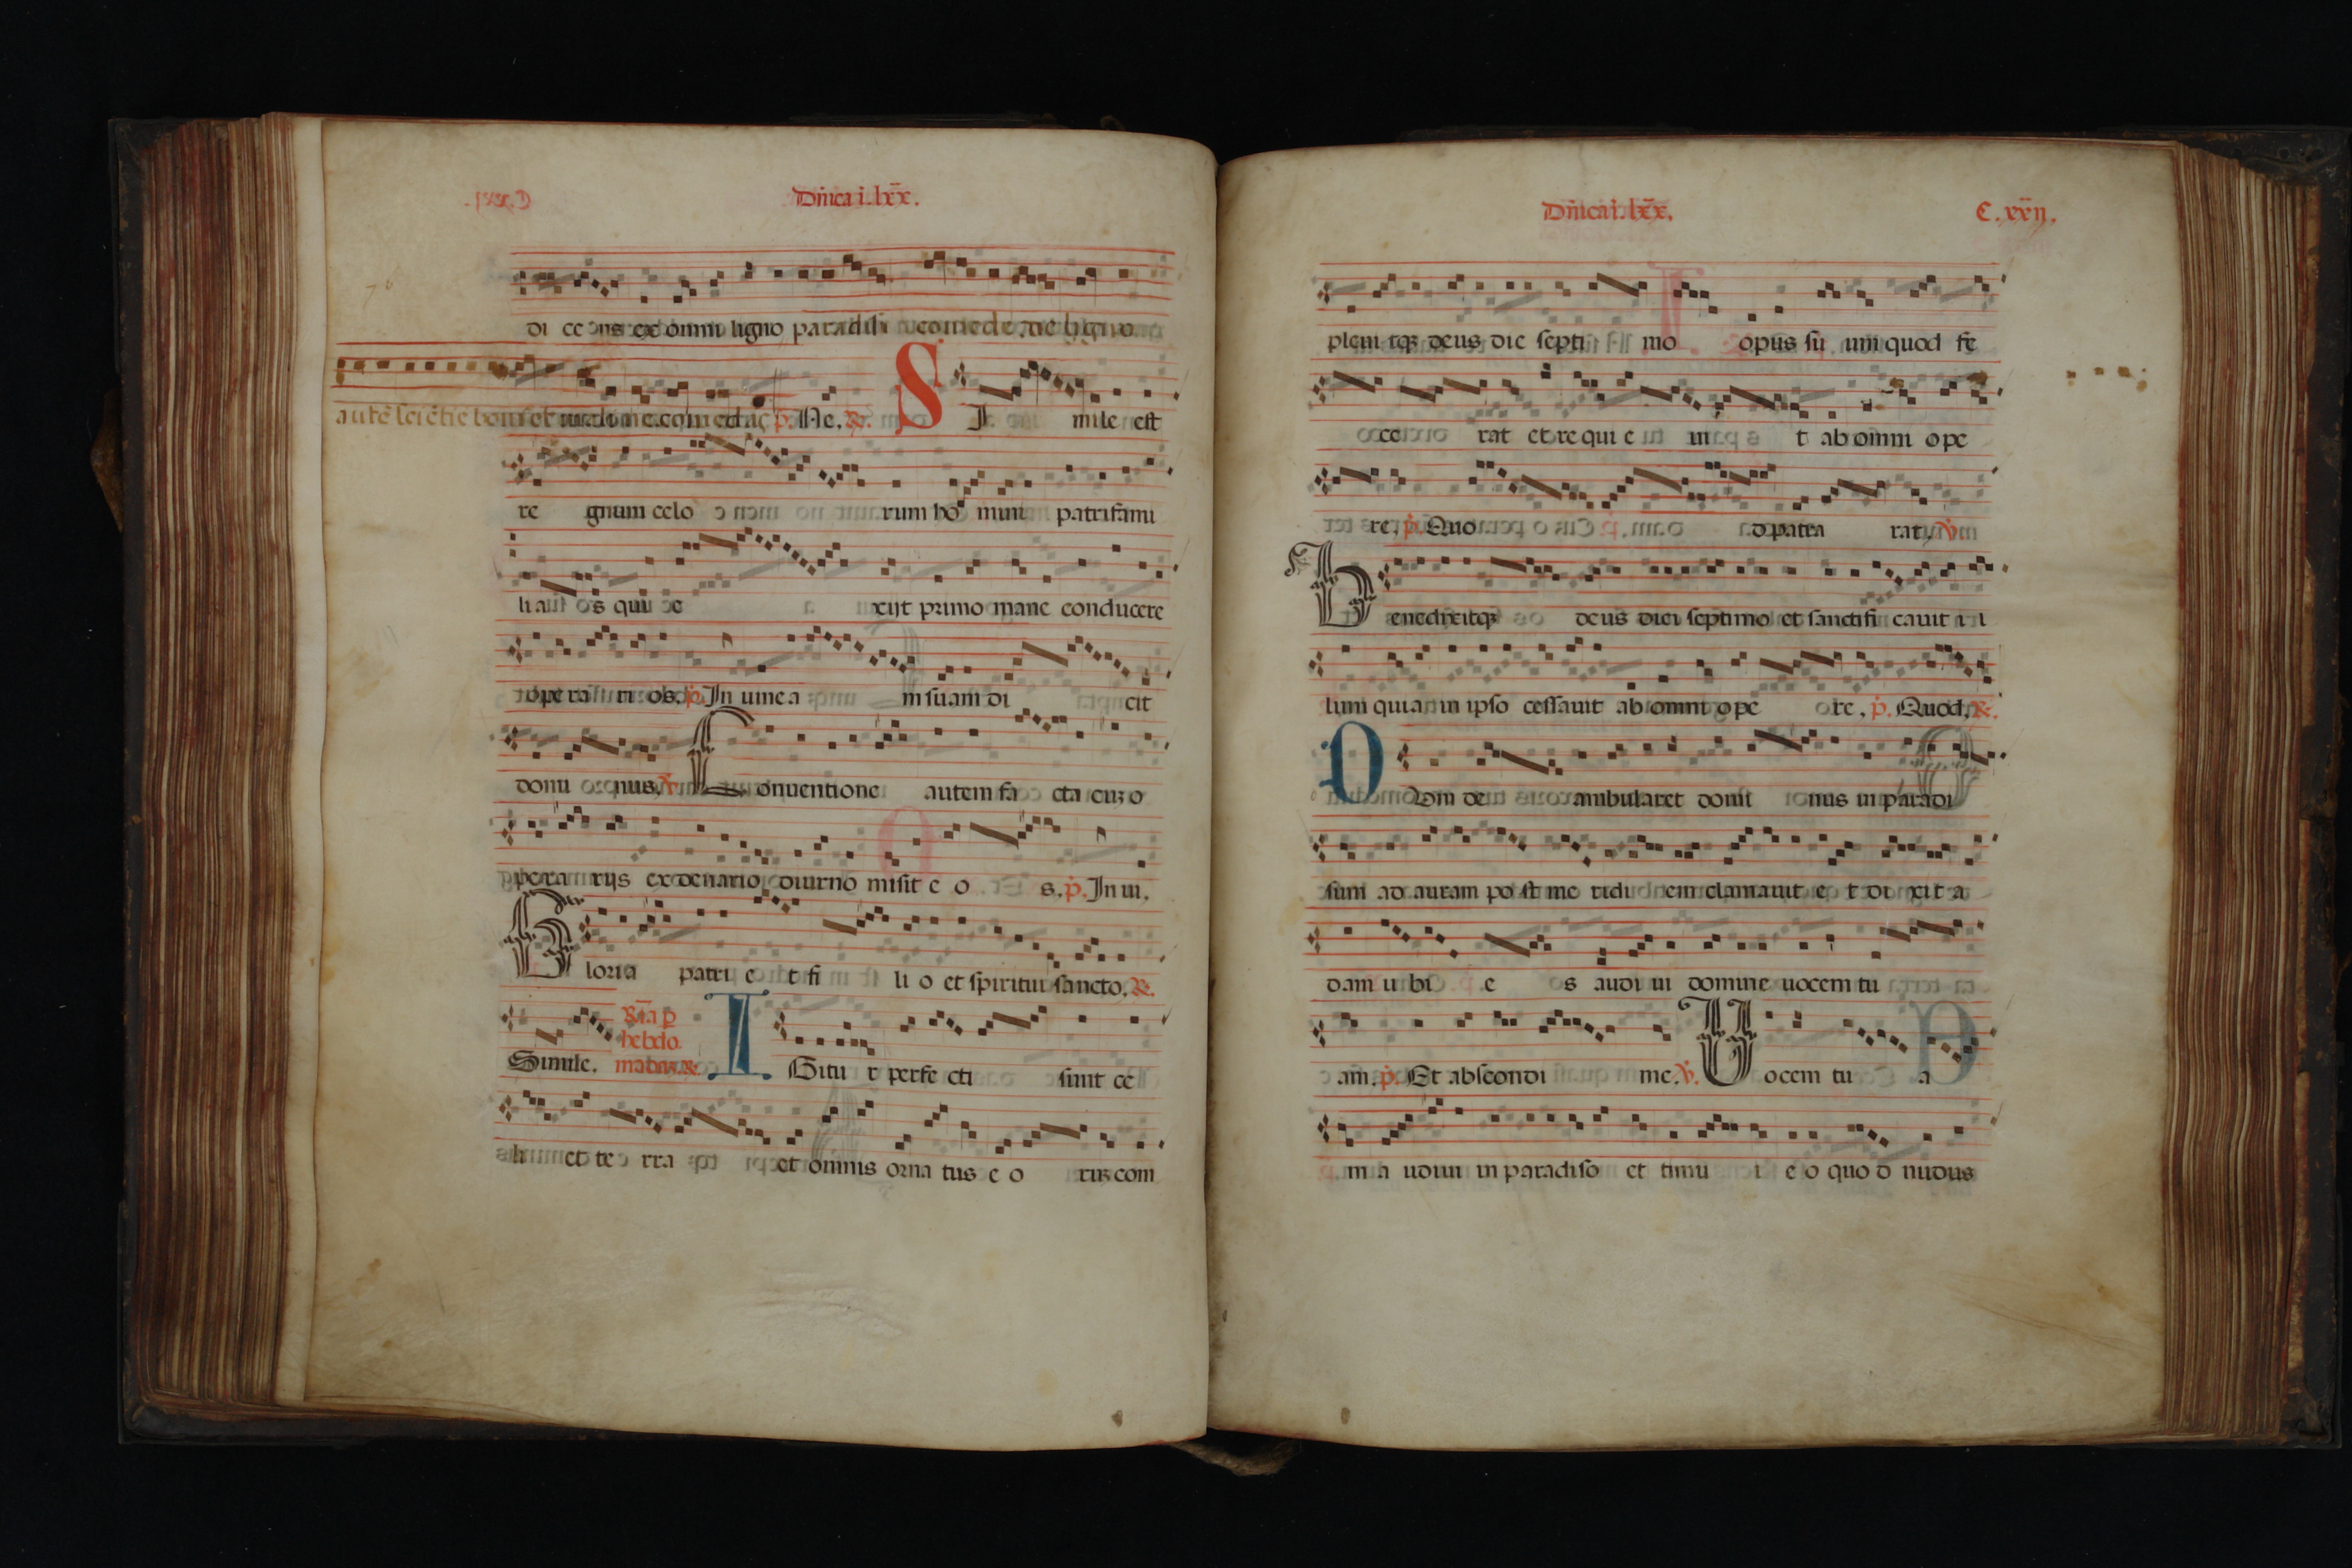 Dñica i. lxx̄.
di cens ex omni ligno paradisi comede de ligno
autē sciētie boni et mali ne comedas p. Ne. R.
S I mile est
re gnum celo rum ho mini patrifami
li as qui e xijt primo mane conducere
ope ra ri os. p. In uinea m suam di cit
domi nus. V. C onuentione autem fa cta cuz o
pera rijs ex denario diurno misit e o s. p. In ui.
G loria patri e t fi li o et spiritui sancto. R.
Simile. hebdo
I Gitu r perfe cti sunt ce
li et te rra et omnis orna tus e o ruz com
Dñica i. lxx̄. C. xxij.
pleuitqz deus die septi mo opus su um quod fe
ce rat et re qui e ui t ab omni ope
re. p. Quo d patra rat. V.
B enedixitqz deus diei septimo et sanctifi cauit i i
lum quia in ipso cessauit ab omni ope re. p. Quod. R.
D Vm de ambularet domi nus in paradi
sum ad auram po st me ridi em clamauit e t di xit a
dam u bi e s audi ui domine uocem tu
am. p. Et abscondi me. V. U ocem tu a
m a udiui in paradiso et timu i e o quo d nudus